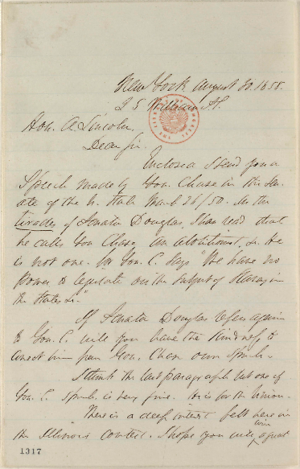 New York August 30, 1858.
75 William St.
Hon. A. Lincoln,
Dear Sir
Enclosed I send you a
Speech made by Gov. Chase in the Sen-
ate of the U. States March 26/50. In the
tirades of Senator Douglas, I have read that
he calls Gov Chase, an abolitionist, &c. He
is not one. As Gov. C. says "We have no
power to legislate on the subject of Slavery in
the States &c."
If Senator Douglas refers again
to Gov. C. will you have the kindness to
correct him from Gov. Chase own Speech.
I think the last paragraph but one of
Gov. C. Speech is very fine. He is for the Union.
There is a deep interest felt here in
the Illinois contest. I hope you will gain a great
1317